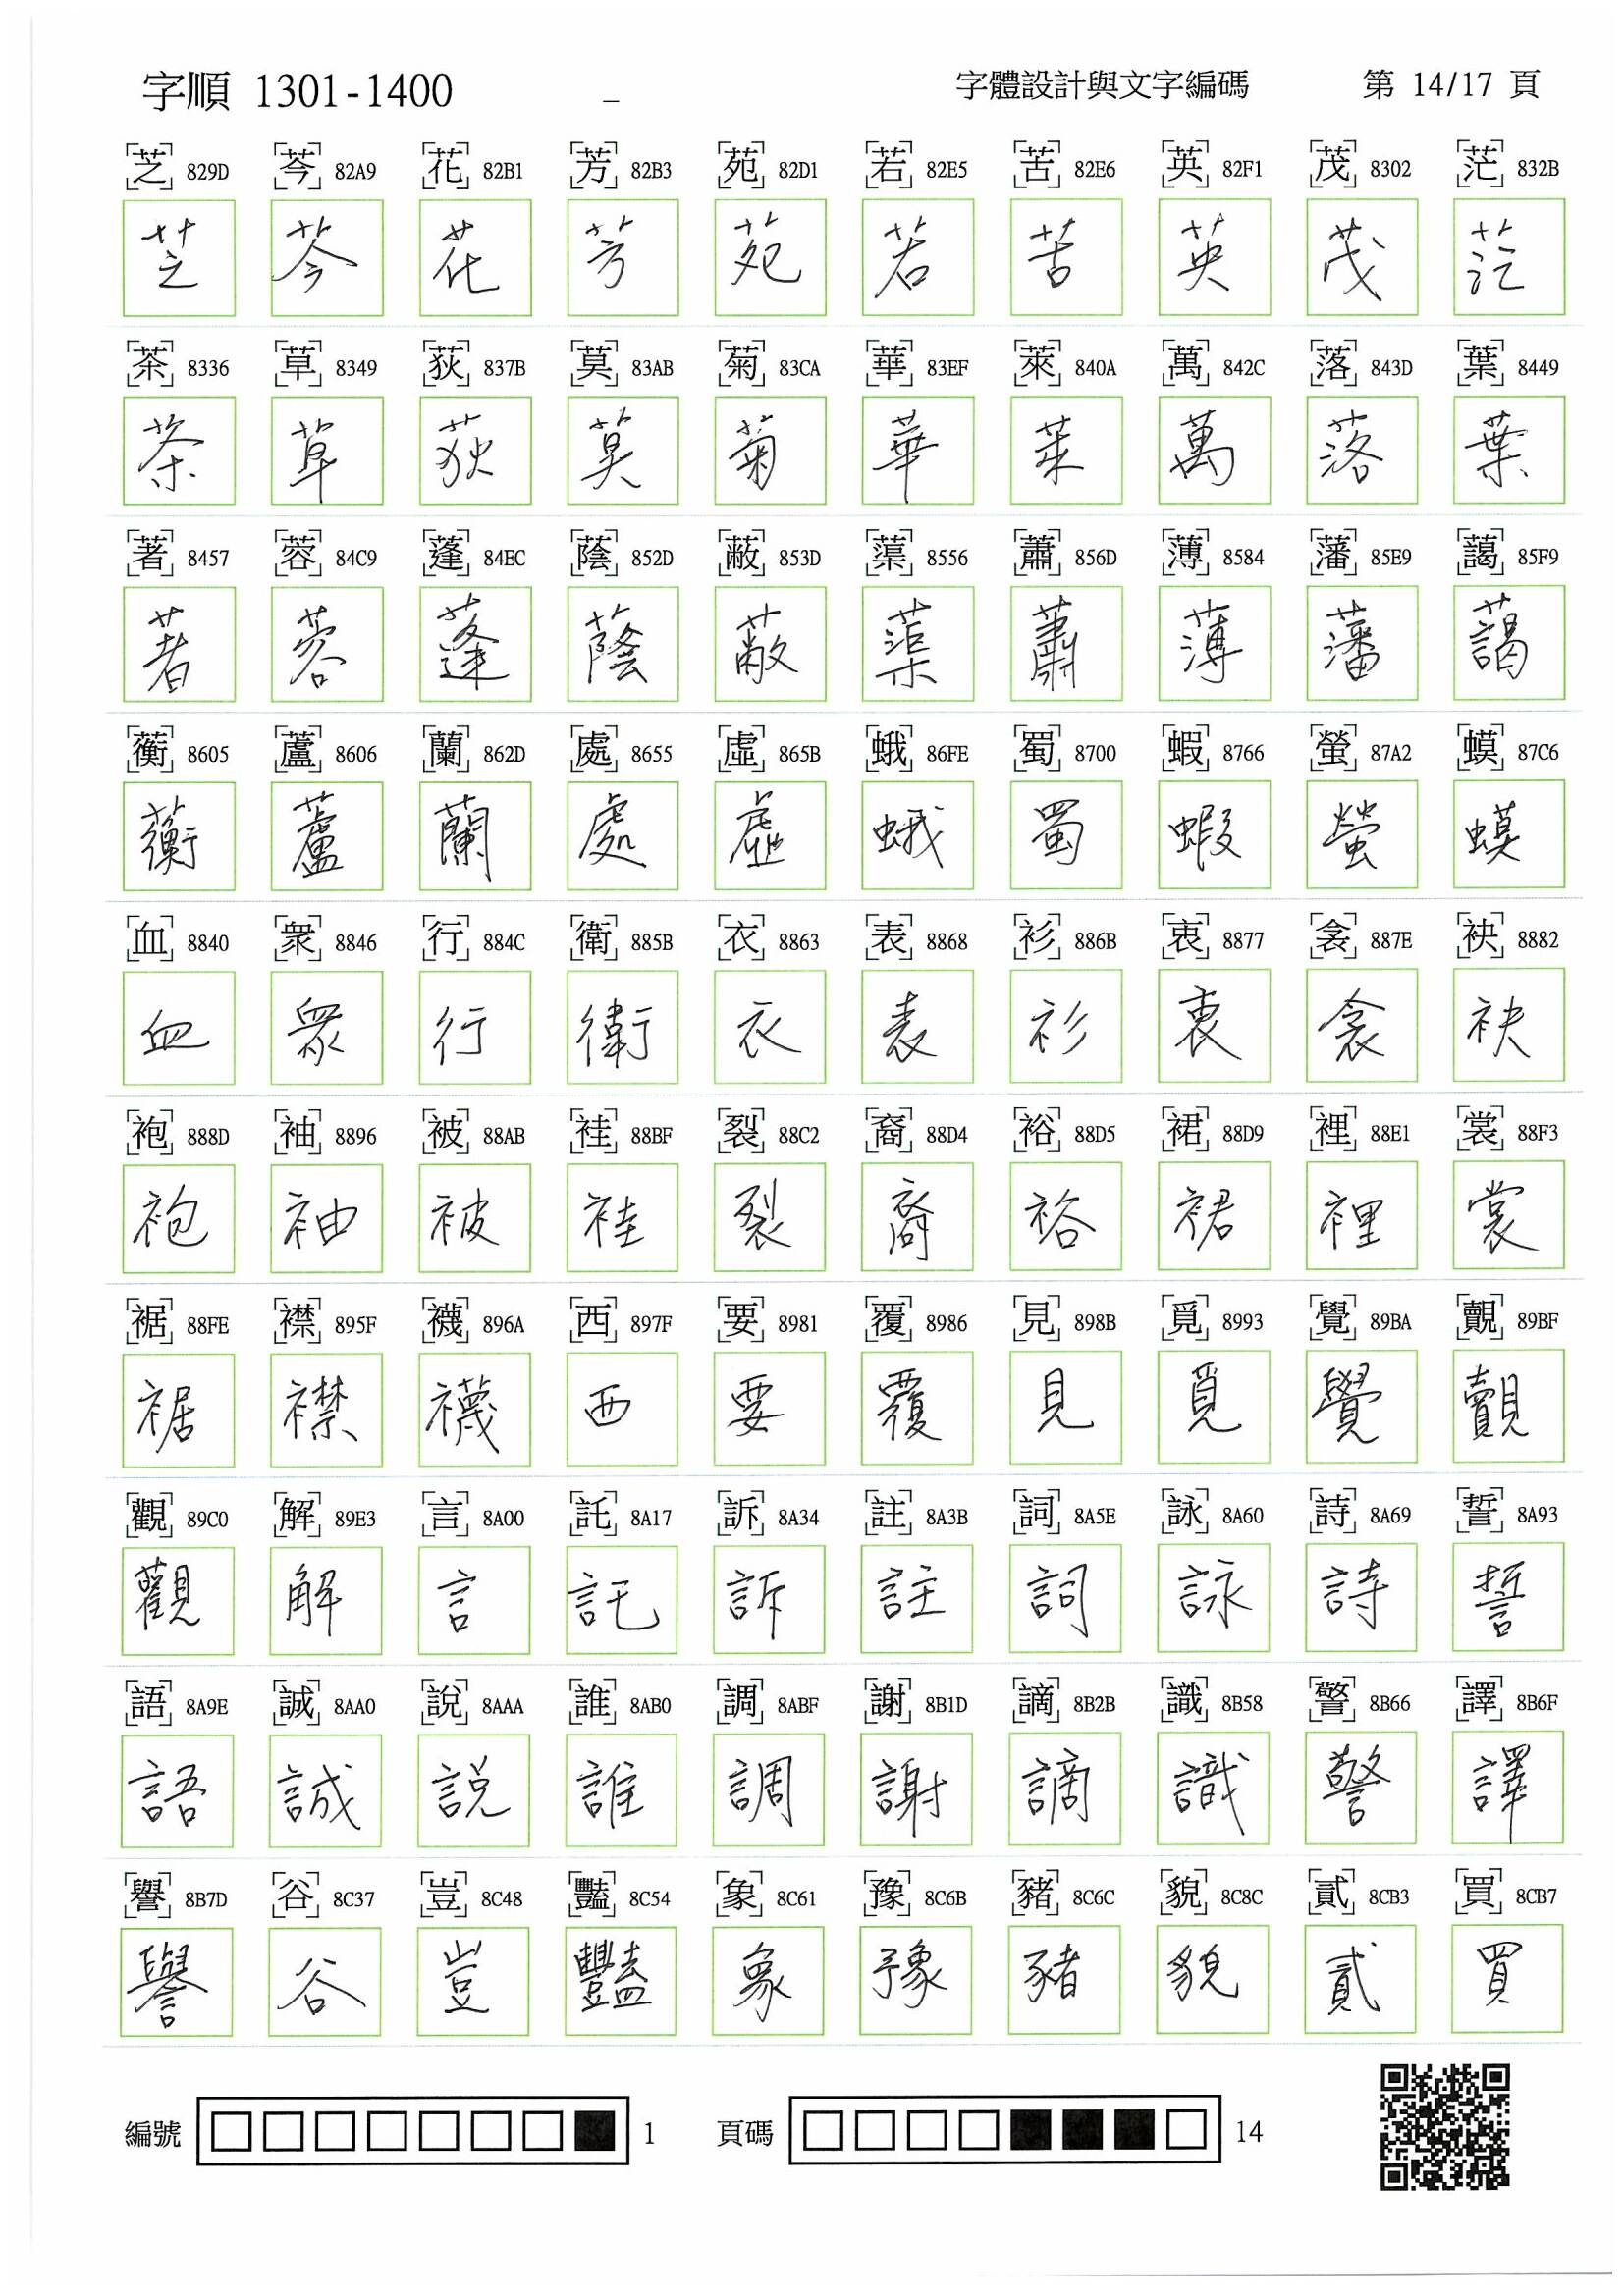 字順 1301-1400 _ 字體設計與文字編碼 第 14/17 頁
芝 829D 芩 82A9 花 82B1 芳 82B3 苑 82D1 若 82E5 苦 82E6 英 82F1 茂 8302 茫 832B
芝 芩 花 芳 苑 若 苦 英 茂 茫
茶 8336 草 8349 荻 837B 莫 83AB 菊 83CA 華 83EF 萊 840A 萬 842C 落 843D 葉 8449
茶 草 荻 莫 菊 華 萊 萬 落 葉
著 8457 蓉 84C9 蓬 84EC 蔭 852D 蔽 853D 蕖 8556 蕭 856D 薄 8584 藩 85E9 藹 85F9
著 蓉 蓬 蔭 蔽 蕖 蕭 薄 藩 藹
蘅 8605 蘆 8606 蘭 862D 處 8655 虛 865B 蛾 86FE 蜀 8700 蝦 8766 螢 87A2 蟆 87C6
蘅 蘆 蘭 處 虛 蛾 蜀 蝦 螢 蟆
血 8840 衆 8846 行 884C 衛 885B 衣 8863 表 8868 衫 886B 衷 8877 衾 887E 袂 8882
血 眾 行 衛 衣 表 衫 衷 衾 袂
袍 888D 袖 8896 被 88AB 袿 88BF 裂 88C2 裔 88D4 裕 88D5 裙 88D9 裡 88E1 裳 88F3
袍 袖 被 袿 裂 裔 裕 裙 裡 裳
裾 88FE 襟 895F 襪 896A 西 897F 要 8981 覆 8986 見 898B 覓 8993 覺 89BA 覿 89BF
裾 襟 襪 西 要 覆 見 覓 覺 覿
觀 89C0 解 89E3 言 8A00 託 8A17 訴 8A34 註 8A3B 詞 8A5E 詠 8A60 詩 8A69 誓 8A93
觀 解 言 託 訴 註 詞 詠 詩 誓
語 8A9E 誠 8AA0 說 8AAA 誰 8AB0 調 8ABF 謝 8B1D 謫 8B2B 識 8B58 警 8B66 譯 8B6F
語 誠 說 誰 調 謝 謫 識 警 譯
譽 8B7D 谷 8C37 豈 8C48 豔 8C54 象 8C61 豫 8C6B 豬 8C6C 貌 8C8C 貳 8CB3 買 8CB7
譽 谷 豈 豔 象 豫 豬 貌 貳 買
編號 1 頁碼 14